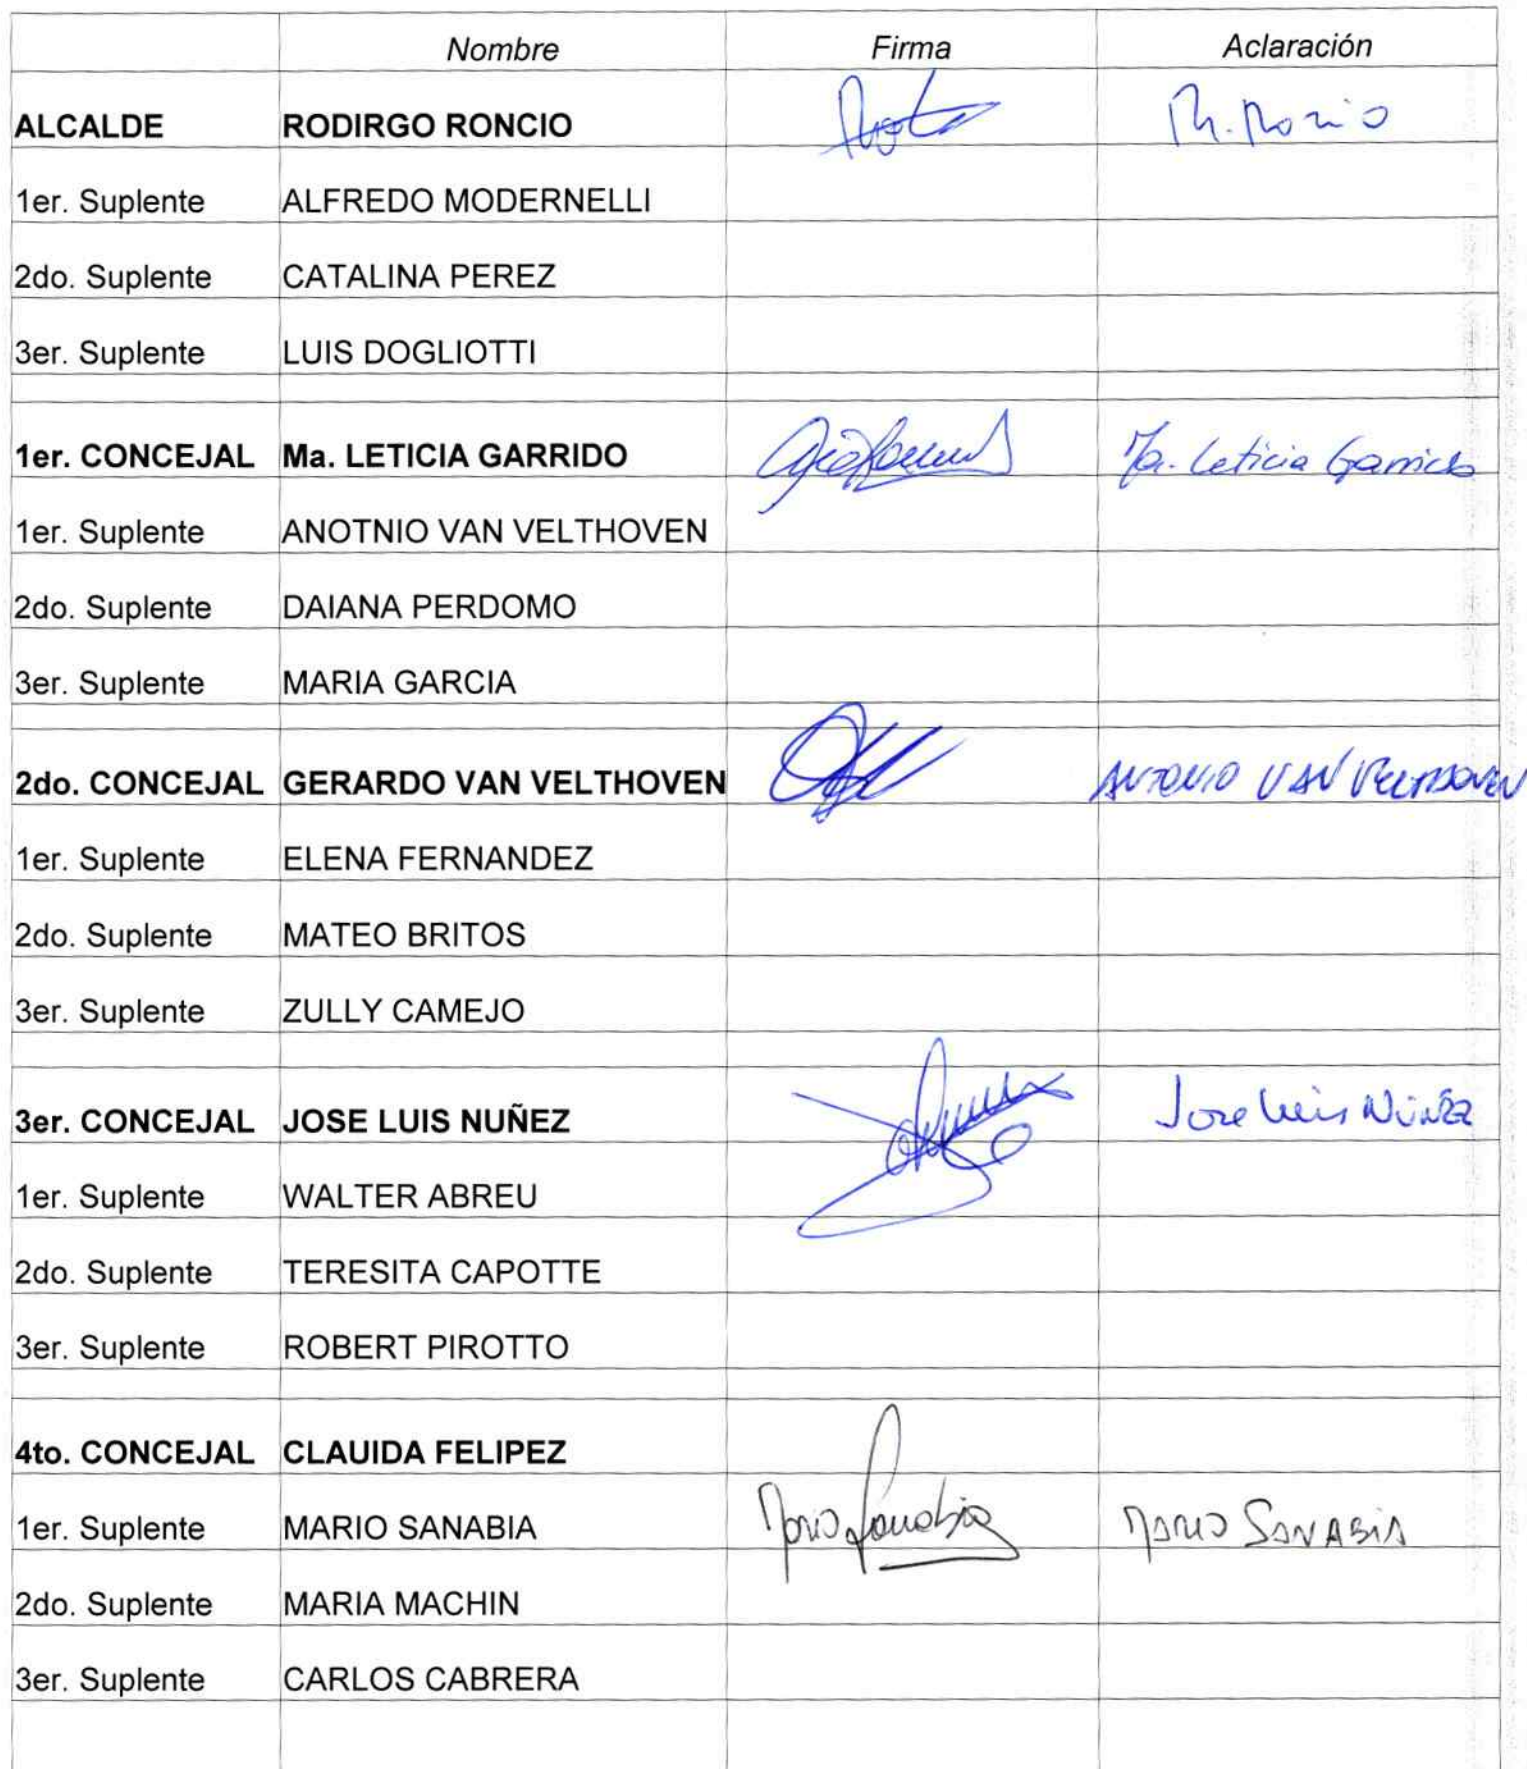 Nombre Firma Aclaración
ALCALDE RODIRGO RONCIO R. Roncio
1er. Suplente ALFREDO MODERNELLI
2do. Suplente CATALINA PEREZ
3er. Suplente LUIS DOGLIOTTI
1er. CONCEJAL Ma. LETICIA GARRIDO Ma. Leticia Garrido
1er. Suplente ANOTNIO VAN VELTHOVEN
2do. Suplente DAIANA PERDOMO
3er. Suplente MARIA GARCIA
2do. CONCEJAL GERARDO VAN VELTHOVEN ANTONIO VAN VELTHOVEN
1er. Suplente ELENA FERNANDEZ
2do. Suplente MATEO BRITOS
3er. Suplente ZULLY CAMEJO
3er. CONCEJAL JOSE LUIS NUÑEZ Jose Luis Núñez
1er. Suplente WALTER ABREU
2do. Suplente TERESITA CAPOTTE
3er. Suplente ROBERT PIROTTO
4to. CONCEJAL CLAUIDA FELIPEZ
1er. Suplente MARIO SANABIA Mario Sanabia MARIO SANABIA
2do. Suplente MARIA MACHIN
3er. Suplente CARLOS CABRERA